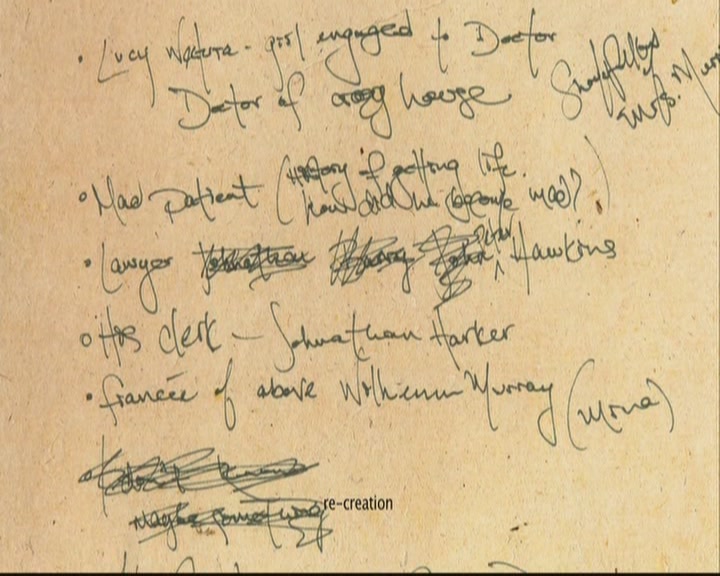 • Lucy - girl engaged to Doctor
Doctor of house
of Miss. Murr
• Mad patient (history of getting life.
how did he become mad?)
• Lawyer Peter Hawkins
• His clerk - Johnathan Harker
• francée of above Murray (Mina)
re-creation